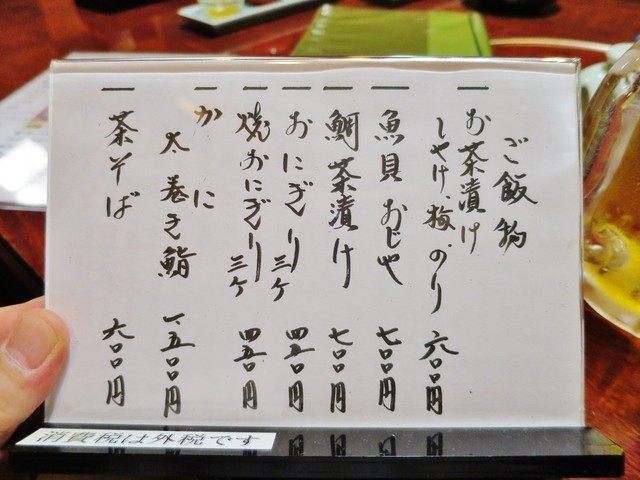 ご飯物
一 お茶漬け
しゃけ、梅、のり 六〇〇円
一 魚貝おじや 七〇〇円
一 鯛茶漬け 七〇〇円
一 おにぎり 三ケ 四五〇円
一 焼おにぎり 三ケ 四五〇円
一 かに
太巻き鮨 一、五〇〇円
一 茶そば 六〇〇円
消費税は外税です